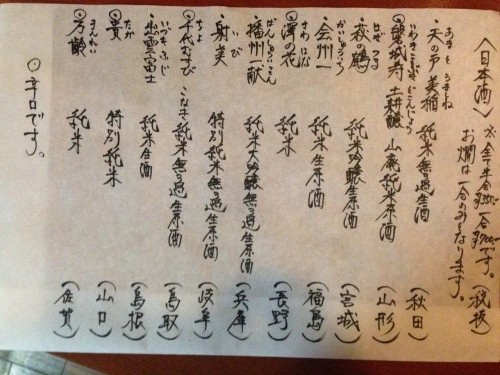 〈日本酒〉 ※全て半合350 一合700です。(税抜)
お燗は一合のみとなります。
あまのと うましね
・天の戸 美稲 純米無ろ過生酒 (秋田)
いわきことぶき どこんじょう
・磐城壽 土耕醸 山廃純米原酒 (山形)
はぎ つる
・萩の鶴 純米吟醸生原酒 (宮城)
かいしゅういち
・会州一 純米生原酒 (福島)
さわ はな
◎澤の花 純米 (長野)
ばんしゅういっこん
・播州一献 純米大吟醸無ろ過生原酒 (兵庫)
いび
・射美 特別純米無ろ過生原酒 (岐阜)
ちよ
◎千代むすび こなき 純米無ろ過生原酒 (鳥取)
いづも ふじ
・出雲富士 純米生酒 (島根)
たか
◎貴 特別純米 (山口)
まんれい
◎万齢 純米 (佐賀)
◎辛口です。